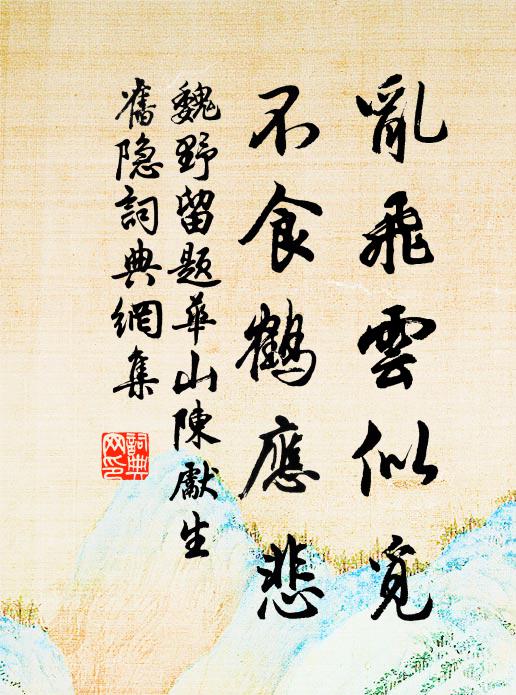 亂飛雲似覓
不食鶴應悲
魏野留題華山陳獻生
舊隐詞典網集
詞典
网印